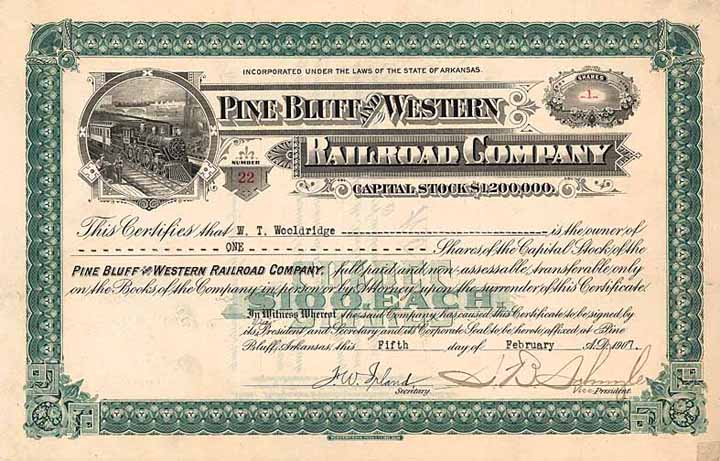 INCORPORATED UNDER THE LAWS OF THE STATE OF ARKANSAS.
SHARES
1
PINE BLUFF AND WESTERN
RAILROAD COMPANY
NUMBER
22
CAPITAL STOCK $1,200,000.
This Certifies that W. T. Wooldridge is the owner of
ONE Shares of the Capital Stock of the
PINE BLUFF AND WESTERN RAILROAD COMPANY, full paid and non-assessable, transferable only
on the Books of the Company in person or by Attorney upon the surrender of this Certificate.
$100. EACH.
In Witness Whereof, the said Company has caused this Certificate to be signed by
its Vice President and Secretary and its Corporate Seal to be hereto affixed at Pine
Bluff, Arkansas, this Fifth day of February A.D. 1907.
Secretary.
Vice President.